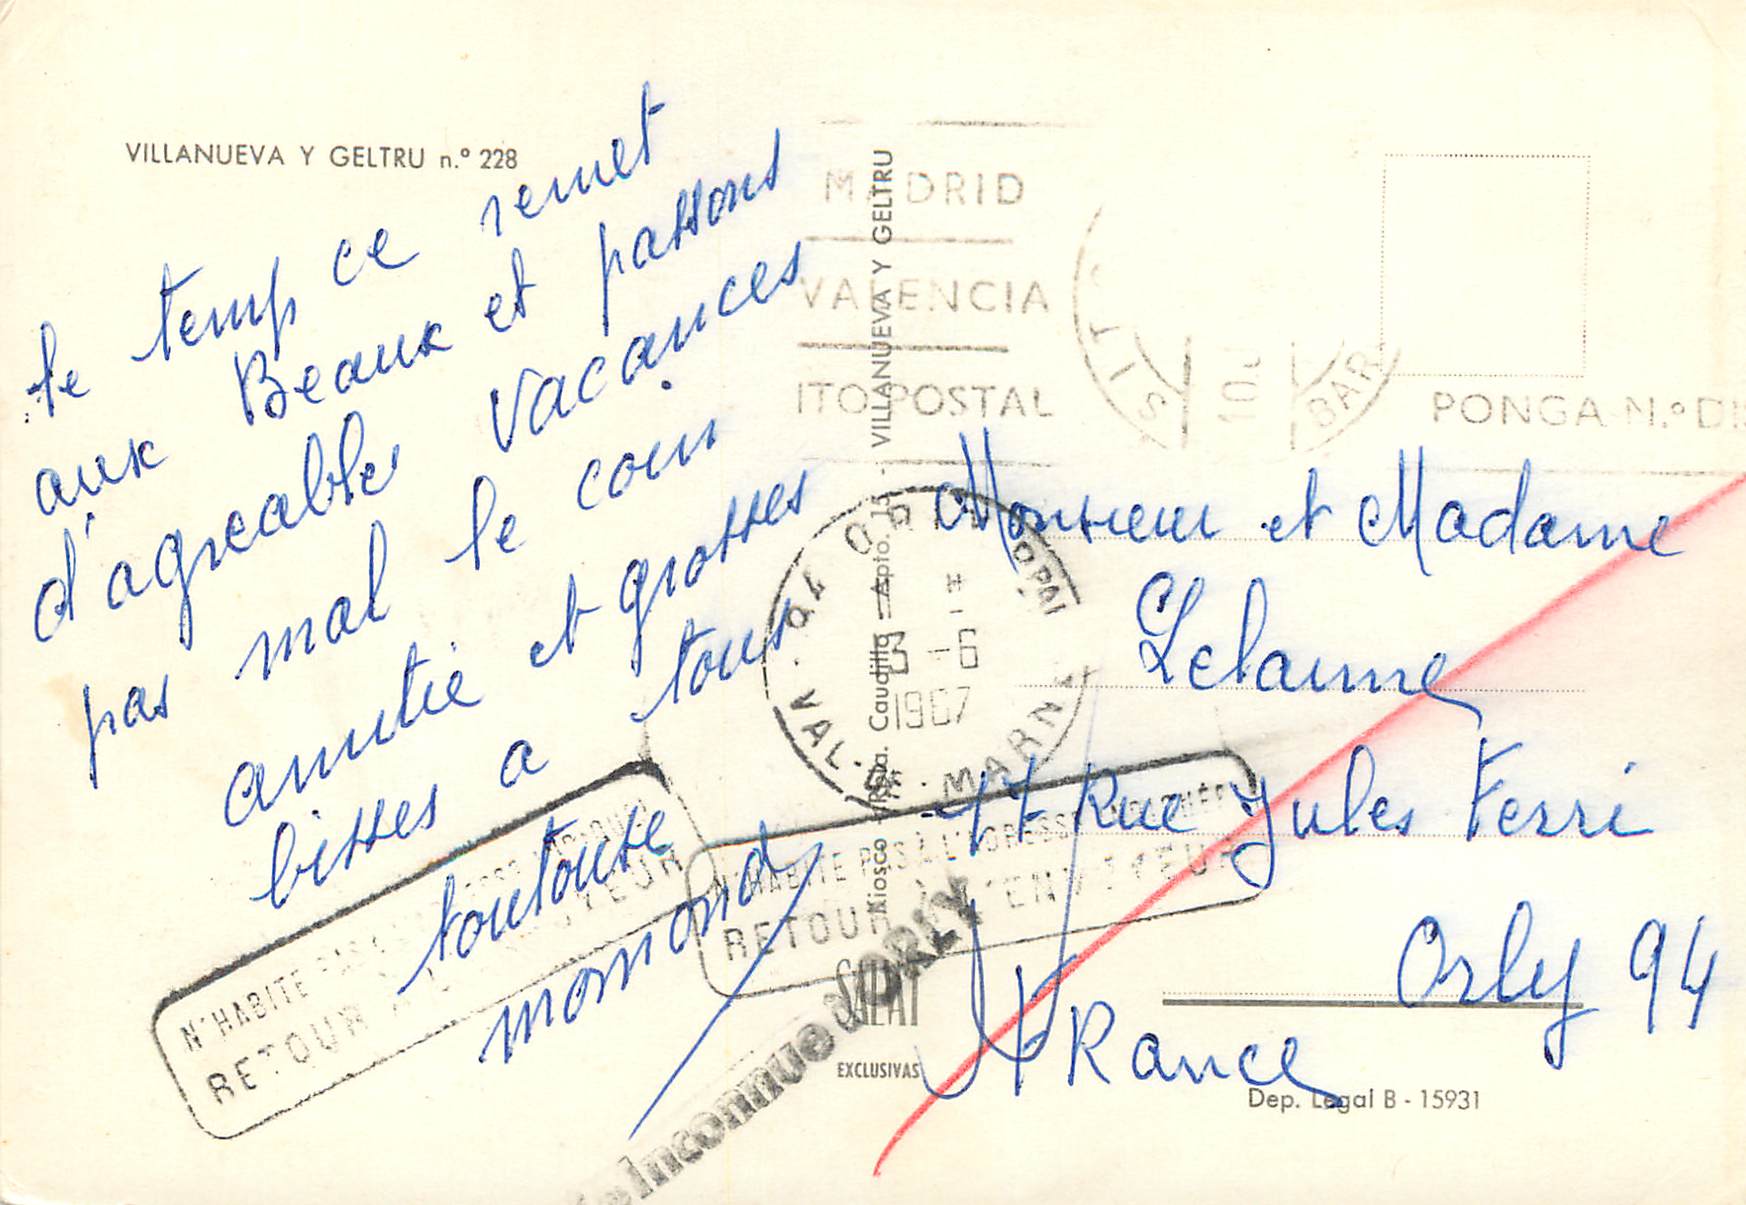 VILLANUEVA Y GELTRU n.º 228
le temp ce remet
aux Beaux et passons
d'agreables vacances
pas mal le coin
amitie et grosses
bisses a tous
toutoute
momond
Kiosco Vapta. Caudillo - Apto. 15 - VILLANUEVA Y GELTRU
MADRID
VALENCIA
ITO POSTAL
BAR
PONGA N.º DIS
94 ORLY
3 - 6
1967
VAL-DE-MARNE
Monsieur et Madame
Lelaune
17 Rue Jules Ferri
Orly 94
France
N'HABITE PAS À L'ADRESSE INDIQUÉE
RETOUR À L'ENVOYEUR
N'HABITE PAS À L'ADRESSE INDIQUÉE
RETOUR À L'ENVOYEUR
Inconnue à ORLY
EXCLUSIVAS
Dep. Legal B - 15931